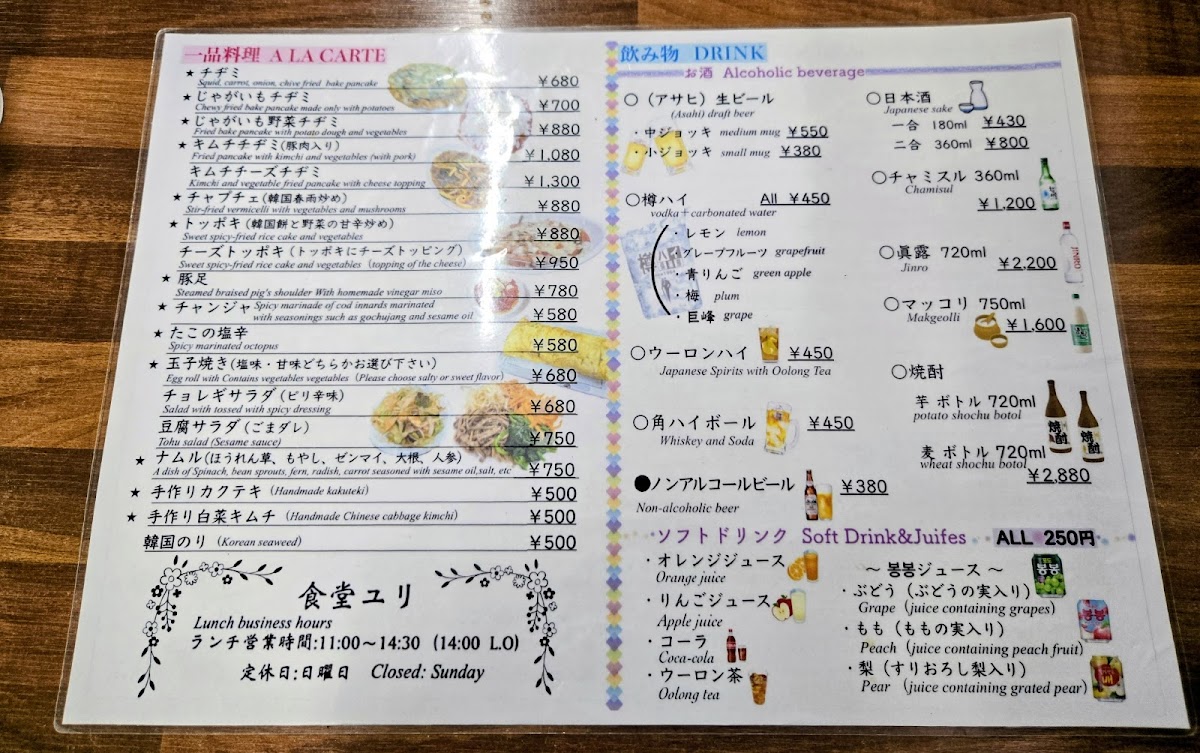 一品料理 A LA CARTE
★ チヂミ
Squid, carrot, onion, chive fried bake pancake ￥680
★ じゃがいもチヂミ
Chewy fried bake pancake made only with potatoes ￥700
★ じゃがいも野菜チヂミ
Fried bake pancake with potato dough and vegetables ￥880
★ キムチチヂミ(豚肉入り)
Fried pancake with kimchi and vegetables (with pork) ￥1,080
キムチチーズチヂミ
Kimchi and vegetable fried pancake with cheese topping ￥1,300
★ チャプチェ(韓国春雨炒め)
Stir-fried vermicelli with vegetables and mushrooms ￥880
★ トッポキ(韓国餅と野菜の甘辛炒め)
Sweet spicy-fried rice cake and vegetables ￥880
チーズトッポキ(トッポキにチーズトッピング)
Sweet spicy-fried rice cake and vegetables (topping of the cheese) ￥950
★ 豚足
Steamed braised pig's shoulder With homemade vinegar miso ￥780
★ チャンジャ Spicy marinade of cod innards marinated
with seasonings such as gochujang and sesame oil ￥580
★ たこの塩辛
Spicy marinated octopus ￥580
★ 玉子焼き(塩味・甘味どちらかお選び下さい)
Egg roll with Contains vegetables vegetables (Please choose salty or sweet flavor) ￥680
チョレギサラダ(ピリ辛味)
Salad with tossed with spicy dressing ￥680
豆腐サラダ(ごまダレ)
Tohu salad (Sesame sauce) ￥750
★ ナムル(ほうれん草、もやし、ゼンマイ、大根、人参)
A dish of Spinach, bean sprouts, fern, radish, carrot seasoned with sesame oil,salt, etc ￥750
★ 手作りカクテキ (Handmade kakuteki) ￥500
★ 手作り白菜キムチ (Handmade Chinese cabbage kimchi) ￥500
韓国のり (Korean seaweed) ￥500
食堂ユリ
Lunch business hours
ランチ営業時間:11:00～14:30 (14:00 L.O)
定休日:日曜日 Closed: Sunday
飲み物 DRINK
お酒 Alcoholic beverage
○（アサヒ）生ビール
(Asahi) draft beer
・中ジョッキ medium mug ￥550
・小ジョッキ small mug ￥380
○樽ハイ All ￥450
vodka＋carbonated water
・レモン lemon
・グレープフルーツ grapefruit
・青りんご green apple
・梅 plum
・巨峰 grape
○ウーロンハイ ￥450
Japanese Spirits with Oolong Tea
○角ハイボール ￥450
Whiskey and Soda
●ノンアルコールビール ￥380
Non-alcoholic beer
○日本酒
Japanese sake
一合 180ml ￥430
二合 360ml ￥800
○チャミスル 360ml
Chamisul
￥1,200
○眞露 720ml
Jinro ￥2,200
○マッコリ 750ml
Makgeolli ￥1,600
○焼酎
芋 ボトル 720ml
potato shochu botol
麦 ボトル 720ml
wheat shochu botol
￥2,880
ソフトドリンク Soft Drink&Juifes ALL 250円
・オレンジジュース
Orange juice
・りんごジュース
Apple juice
・コーラ
Coca-cola
・ウーロン茶
Oolong tea
～ 봉봉ジュース ～
・ぶどう（ぶどうの実入り）
Grape (juice containing grapes)
・もも（ももの実入り）
Peach (juice containing peach fruit)
・梨（すりおろし梨入り）
Pear (juice containing grated pear)